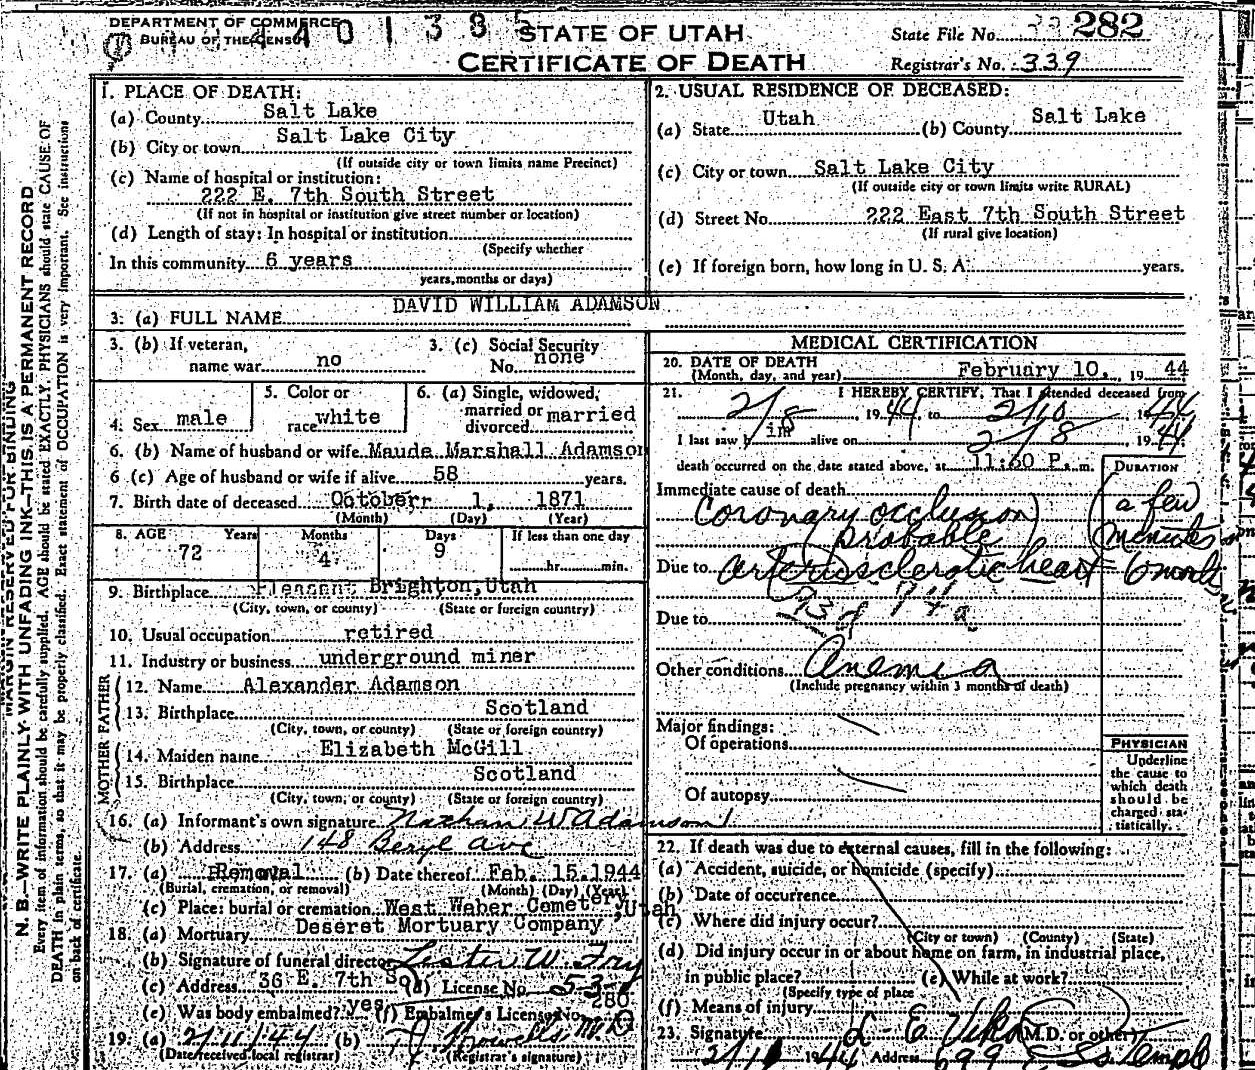 DEPARTMENT OF COMMERCE
BUREAU OF THE CENSUS
STATE OF UTAH
CERTIFICATE OF DEATH
State File No. 282
Registrar's No. 339
1. PLACE OF DEATH:
(a) County Salt Lake
Salt Lake City
(b) City or town
(If outside city or town limits name Precinct)
(c) Name of hospital or institution:
222 E. 7th South Street
(If not in hospital or institution give street number or location)
(d) Length of stay: In hospital or institution
(Specify whether
In this community 6 years
years, months or days)
2. USUAL RESIDENCE OF DECEASED:
(a) State Utah (b) County Salt Lake
(c) City or town Salt Lake City
(If outside city or town limits write RURAL)
(d) Street No. 222 East 7th South Street
(If rural give location)
(e) If foreign born, how long in U. S. A. years.
DAVID WILLIAM ADAMSON
3. (a) FULL NAME
3. (b) If veteran, 3. (c) Social Security
name war no No. none
4. Sex male 5. Color or race white 6. (a) Single, widowed, married or divorced married
6. (b) Name of husband or wife Maude Marshall Adamson
6 (c) Age of husband or wife if alive 58 years.
7. Birth date of deceased Octoberr 1, 1871
(Month) (Day) (Year)
8. AGE Years Months Days If less than one day
72 4 9 hr. min.
9. Birthplace Pleasant Brighton, Utah
(City, town, or county) (State or foreign country)
10. Usual occupation retired
11. Industry or business underground miner
FATHER
12. Name Alexander Adamson
13. Birthplace Scotland
(City, town, or county) (State or foreign country)
MOTHER
14. Maiden name Elizabeth McGill
15. Birthplace Scotland
(City, town, or county) (State or foreign country)
16. (a) Informant's own signature Nathan W Adamson
(b) Address 148 Beryl Ave
17. (a) Removal (b) Date thereof Feb. 15, 1944
(Burial, cremation, or removal) (Month) (Day) (Year)
(c) Place: burial or cremation West Weber Cemetery, Utah
18. (a) Mortuary Deseret Mortuary Company
(b) Signature of funeral director Lester W.
(c) Address 36 E. 7th So. (d) License No.
(e) Was body embalmed? yes (f) Embalmer's License No. 280
19. (a) 2/11/44 (b) M.D.
(Date received local registrar) (Registrar's signature)
MEDICAL CERTIFICATION
20. DATE OF DEATH
(Month, day, and year) February 10, 1944
21. I HEREBY CERTIFY, That I attended deceased from
2/8, 1944 to 2/10, 1944
I last saw him alive on 2/8, 1944
death occurred on the date stated above, at 11:50 P.m. DURATION
Immediate cause of death
Coronary occlusion (a few
(probable) minutes
Due to Arteriosclerotic heart 6 months
Due to
Other conditions Anemia
(Include pregnancy within 3 months of death)
Major findings:
Of operations
Of autopsy
PHYSICIAN
Underline
the cause to
which death
should be
charged sta-
tistically.
22. If death was due to external causes, fill in the following:
(a) Accident, suicide, or homicide (specify)
(b) Date of occurrence
(c) Where did injury occur?
(City or town) (County) (State)
(d) Did injury occur in or about home on farm, in industrial place,
in public place? (e) While at work?
(Specify type of place
(f) Means of injury
23. Signature L. E. Viko (M.D. or other)
1944 Address 699 E So Templ
MARGIN RESERVED FOR BINDING
N. B.—WRITE PLAINLY WITH UNFADING INK—THIS IS A PERMANENT RECORD
Every item of information should be carefully supplied. AGE should be stated EXACTLY. PHYSICIANS should state CAUSE OF
DEATH in plain terms, so that it may be properly classified. Exact statement of OCCUPATION is very important. See instructions
on back of certificate.